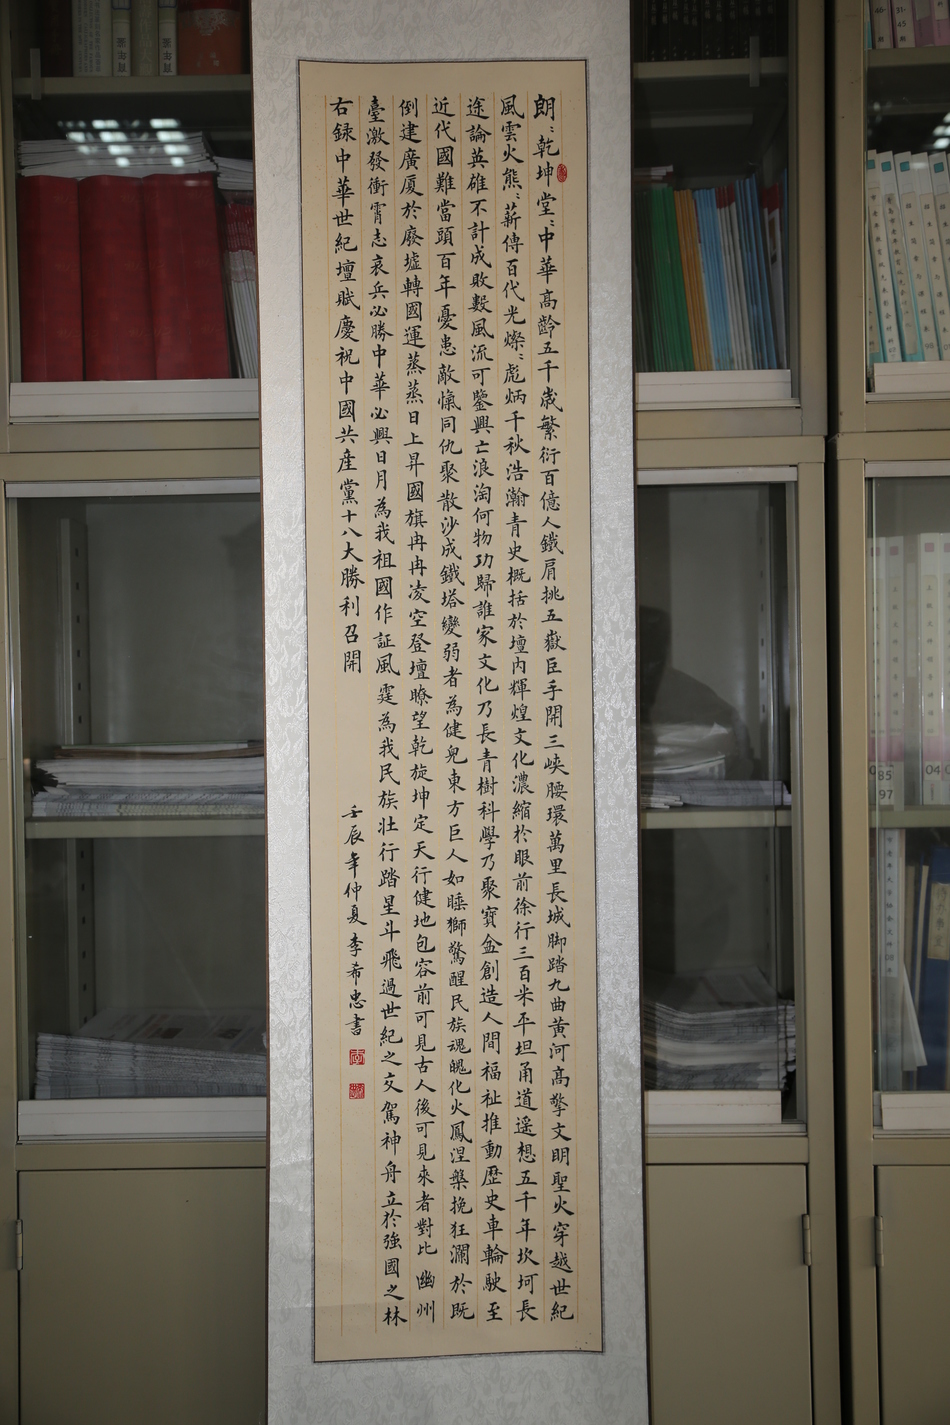 朗〻乾坤堂〻中華高齡五千歲繁衍百億人鐵肩挑五嶽巨手開三峽腰環萬里長城脚踏九曲黃河高擎文明聖火穿越世紀
風雲火熊〻薪傳百代光燦〻彪炳千秋浩瀚青史概括於壇內輝煌文化濃縮於眼前徐行三百米平坦甬道遥想五千年坎坷長
途論英雄不計成敗數風流可鑒興亡浪淘何物功歸誰家文化乃長青樹科學乃聚寶盆創造人間福祉推動歷史車輪駛至
近代國難當頭百年憂患敵愾同仇聚散沙成鐵塔變弱者為健兒東方巨人如睡獅驚醒民族魂魄化火鳳涅槃挽狂瀾於既
倒建廣厦於廢墟轉國運蒸蒸日上昇國旗冉冉凌空登壇瞭望乾旋坤定天行健地包容前可見古人後可見來者對比幽州
臺激發衝霄志哀兵必勝中華必興日月為我祖國作証風霆為我民族壯行踏星斗飛過世紀之交駕神舟立於強國之林
右録中華世紀壇賦慶祝中國共産黨十八大勝利召開
壬辰年仲夏李希忠書